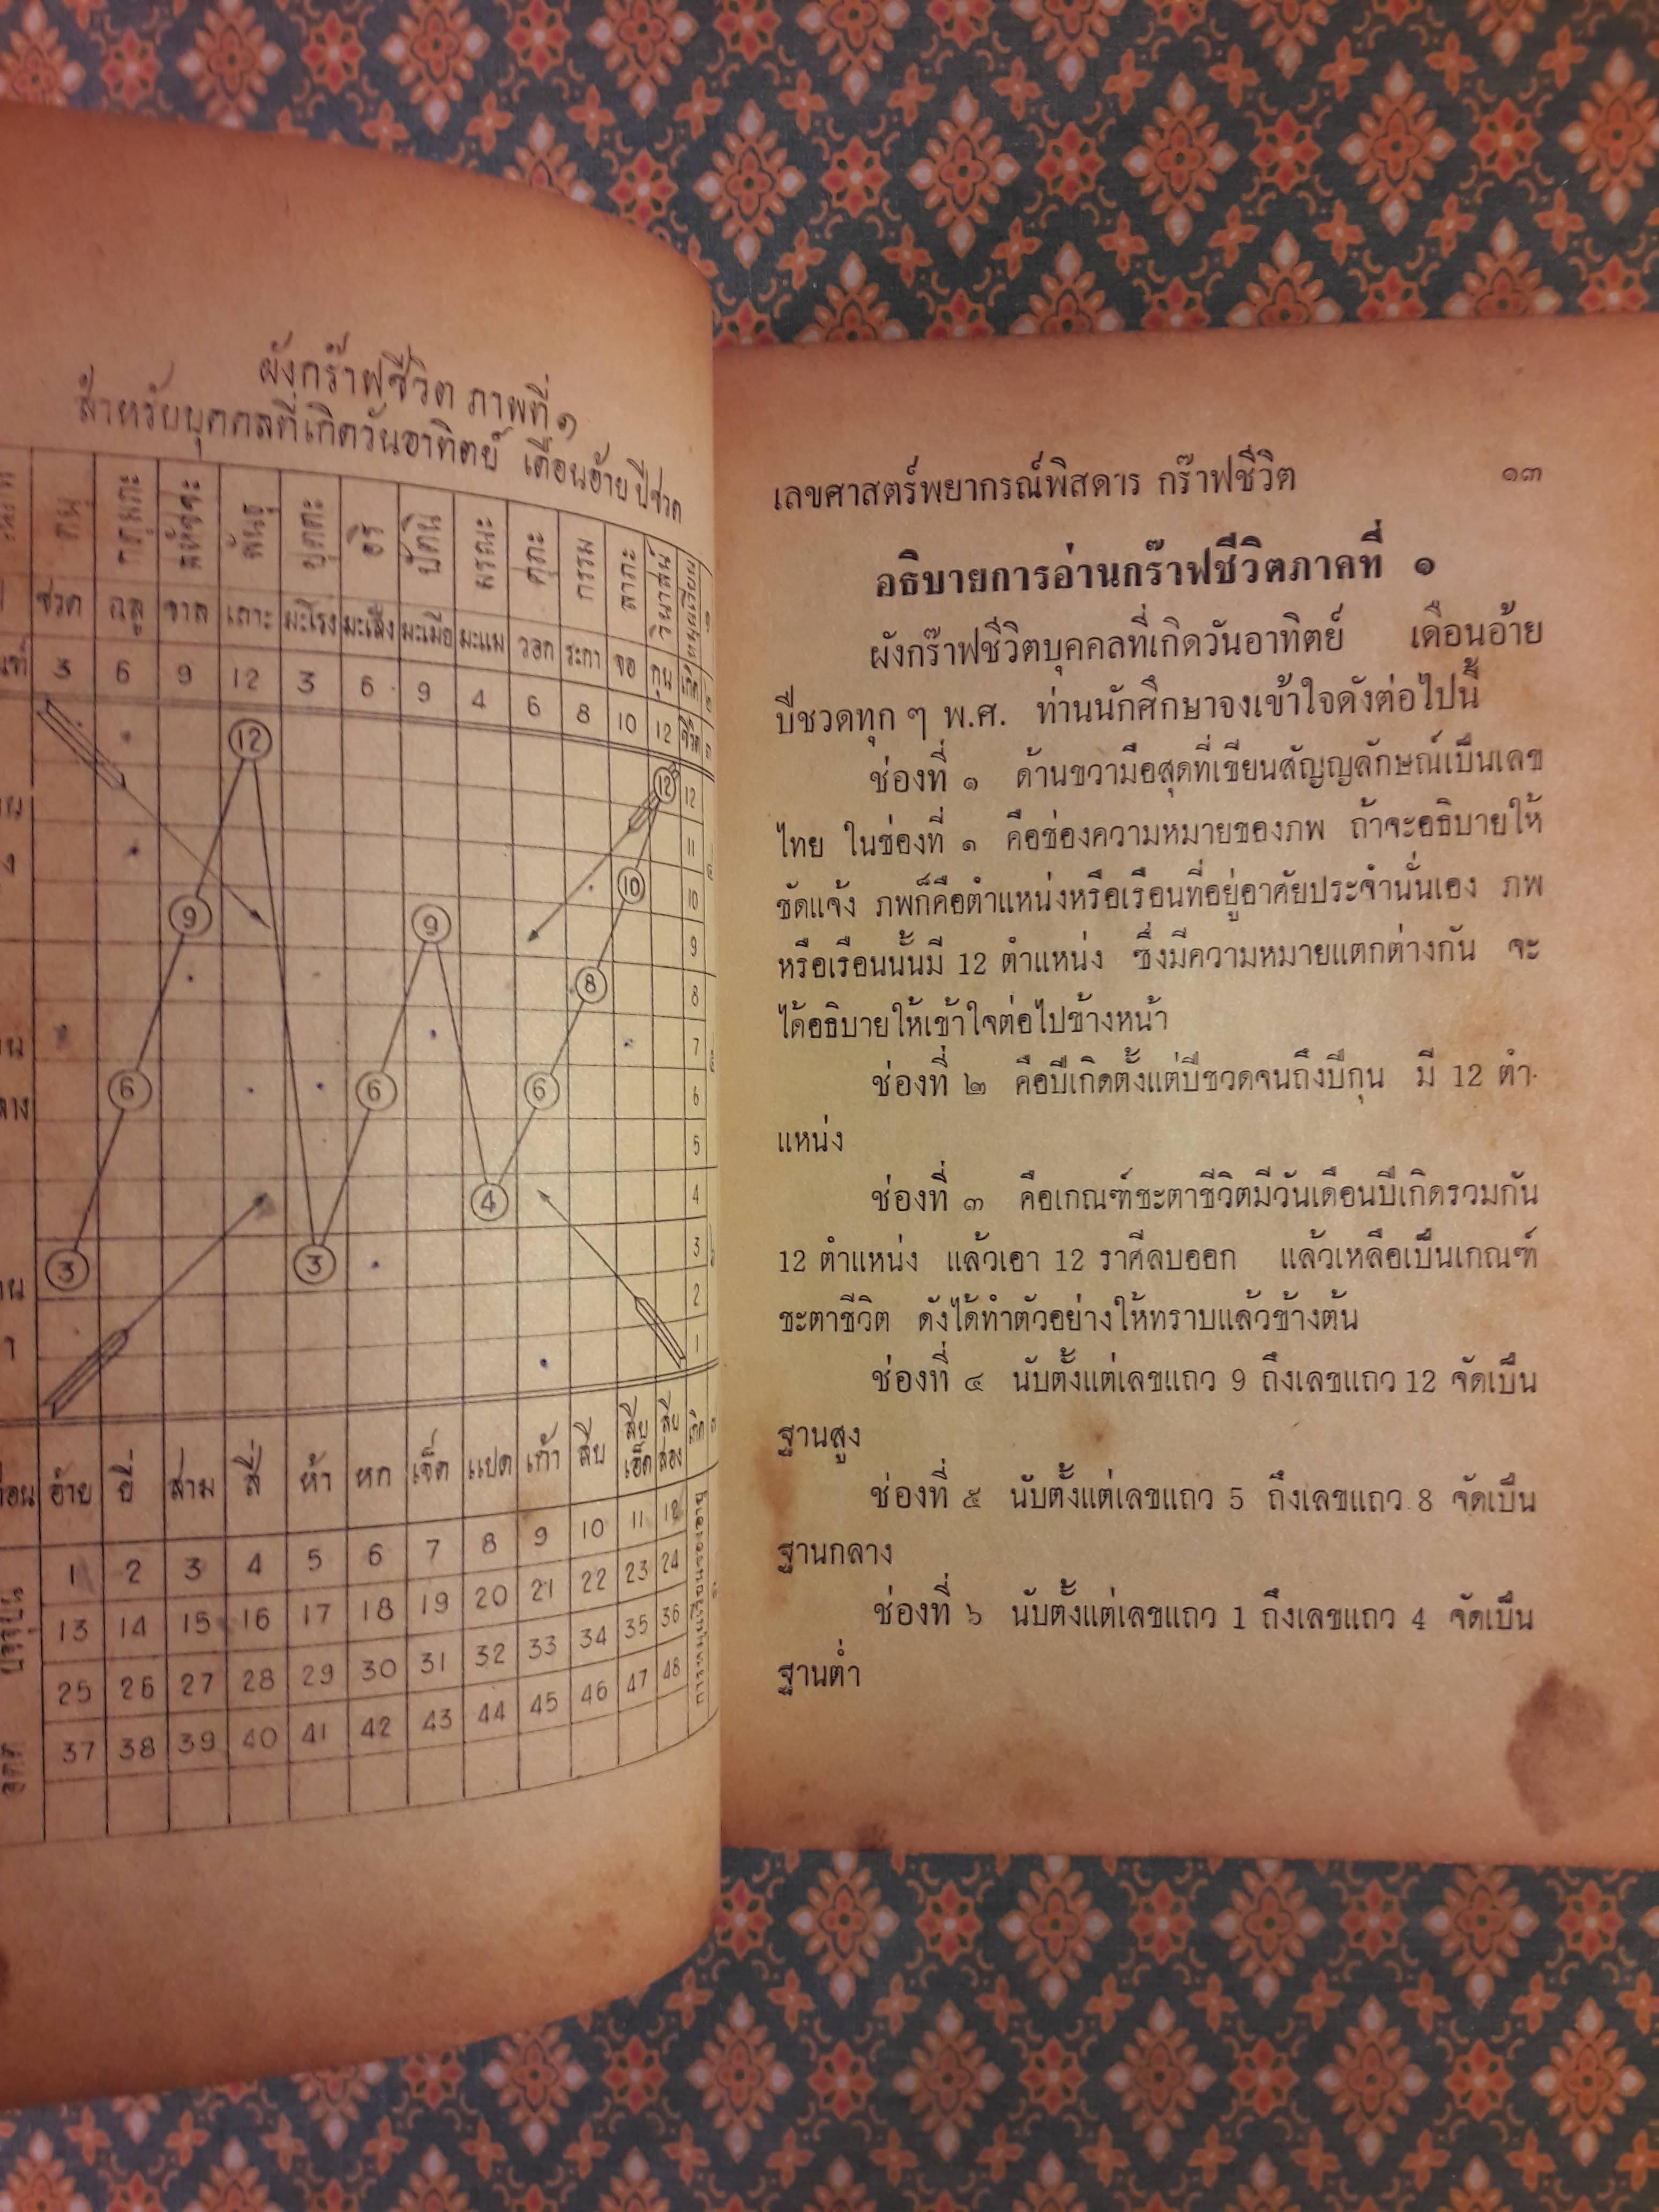 ผังกร๊าฟชีวิต ภาพที่ ๑
สำหรับบุคคลที่เกิดวันอาทิตย์ เดือนอ้าย ปีชวด
ตนุ กฎุมภะ สหัชชะ พันธุ ปุตตะ อริ ปัตนิ มรณะ ศุภะ กรรม ลาภะ วินาสน์
ชวด ฉลู ขาล เถาะ มะโรง มะเส็ง มะเมีย มะแม วอก ระกา จอ กุน
3 6 9 12 3 6 9 4 6 8 10 12
12 12 12
11
10 10
9 9 9
8 8
7
6 6 6 6
5
4 4
3 3 3
2
1
อ้าย ยี่ สาม สี่ ห้า หก เจ็ด แปด เก้า สิบ สิบเอ็ด สิบสอง
1 2 3 4 5 6 7 8 9 10 11 12
13 14 15 16 17 18 19 20 21 22 23 24
25 26 27 28 29 30 31 32 33 34 35 36
37 38 39 40 41 42 43 44 45 46 47 48
เลขศาสตร์พยากรณ์พิสดาร กร๊าฟชีวิต ๑๓
อธิบายการอ่านกร๊าฟชีวิตภาคที่ ๑
ผังกร๊าฟชีวิตบุคคลที่เกิดวันอาทิตย์ เดือนอ้าย
ปีชวดทุก ๆ พ.ศ. ท่านนักศึกษาจงเข้าใจดังต่อไปนี้
ช่องที่ ๑ ด้านขวามือสุดที่เขียนสัญญลักษณ์เป็นเลข
ไทย ในช่องที่ ๑ คือช่องความหมายของภพ ถ้าจะอธิบายให้
ชัดแจ้ง ภพก็คือตำแหน่งหรือเรือนที่อยู่อาศัยประจำนั่นเอง ภพ
หรือเรือนนั้นมี 12 ตำแหน่ง ซึ่งมีความหมายแตกต่างกัน จะ
ได้อธิบายให้เข้าใจต่อไปข้างหน้า
ช่องที่ ๒ คือปีเกิดตั้งแต่ปีชวดจนถึงปีกุน มี 12 ตำ-
แหน่ง
ช่องที่ ๓ คือเกณฑ์ชะตาชีวิตมีวันเดือนปีเกิดรวมกัน
12 ตำแหน่ง แล้วเอา 12 ราศีลบออก แล้วเหลือเป็นเกณฑ์
ชะตาชีวิต ดังได้ทำตัวอย่างให้ทราบแล้วข้างต้น
ช่องที่ ๔ นับตั้งแต่เลขแถว 9 ถึงเลขแถว 12 จัดเป็น
ฐานสูง
ช่องที่ ๕ นับตั้งแต่เลขแถว 5 ถึงเลขแถว 8 จัดเป็น
ฐานกลาง
ช่องที่ ๖ นับตั้งแต่เลขแถว 1 ถึงเลขแถว 4 จัดเป็น
ฐานต่ำ